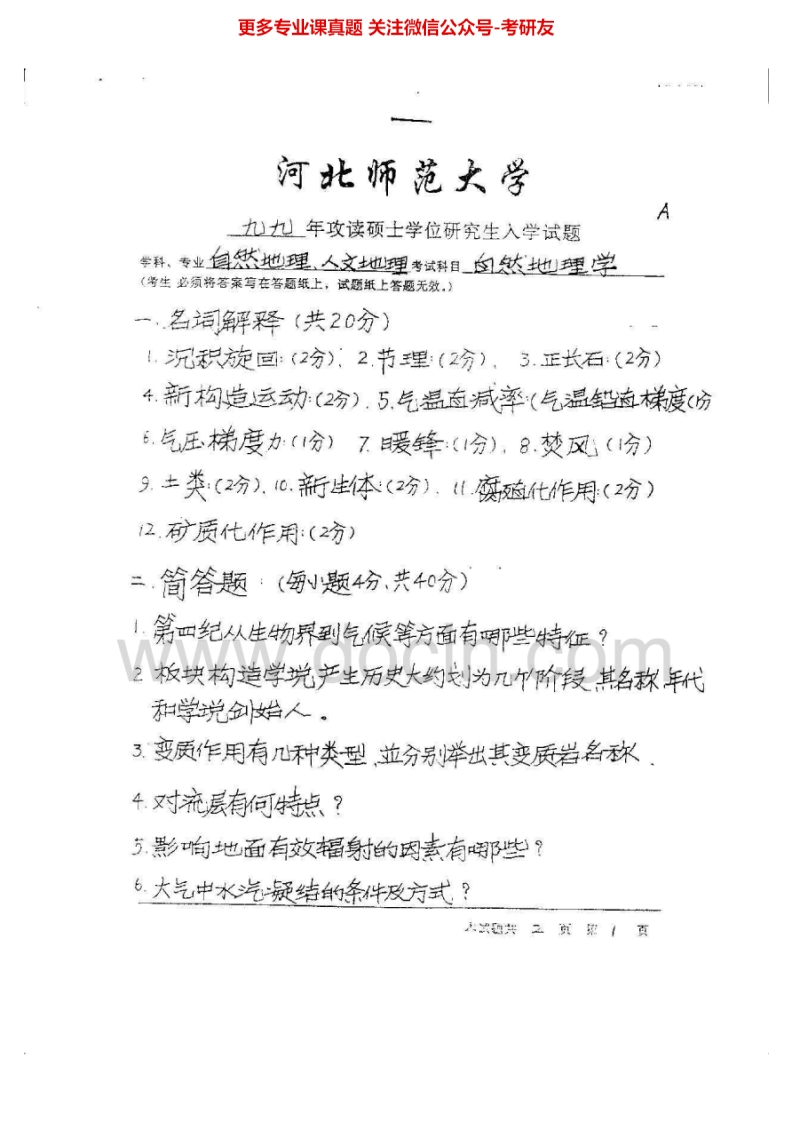 更多专业课真题 关注微信公众号-考研友
河北师范大学
A
九九年攻读硕士学位研究生入学试题
学科、专业 自然地理、人文地理 考试科目 自然地理学
(考生 必须将答案写在答题纸上，试题纸上答题无效。)
一.名词解释(共20分)
1.沉积旋回:(2分)、2.节理:(2分)、3.正长石:(2分)
4.新构造运动:(2分).5.气温直减率:(气温铅直梯度(1分
6.气压梯度力:(1分) 7.暖锋:(1分)、8.焚风(1分)
9.土类:(2分)、10.新生体:(2分). 11.腐殖化作用:(2分)
12.矿质化作用:(2分)
二.简答题:(每小题4分、共40分)
1.第四纪从生物界到气候等方面有哪些特征?
www.docin.com
2.板块构造学说产生历史大约划为几个阶段,其名称、年代
和学说创始人。
3.变质作用有几种类型,並分别举出其变质岩名称.
4.对流层有何特点?
5.影响地面有效辐射的因素有哪些?
6.大气中水汽凝结的条件及方式?
本试题共 2 页 第 1 页